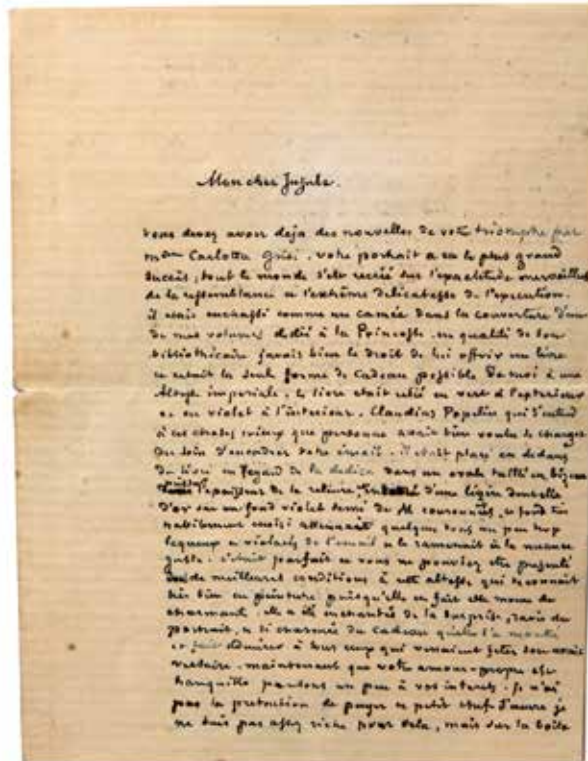 Mon cher Jugule.
vous devez avoir deja des nouvelles de votre triomphe par
Mme Carlotta Grisi. votre portrait a eu le plus grand
succès, tout le monde s'est recrié sur l'exactitude merveilleuse
de la ressemblance et l'extrême delicatesse de l'execution.
il etait enchassé comme un camée dans la couverture d'un
de mes volumes dédié à la Princesse. en qualité de son
bibliothécaire j'avais bien le droit de lui offrir un livre
ce etait la seule forme de Cadeau possible De moi à une
Altesse imperiale. le livre etait relié en vert à l'exterieur
et en violet à l'interieur. Claudius Popelin qui s'entend
à ces choses mieux que personne avait bien voulu se charger
du soin d'encadrer votre émail. il etait placé en dedans
du livre en regard de la dédicace dans un ovale taillé en biseau
l'epaisseur de la reliure, d'une légère dentelle
d'or sur un fond violet semé de M couronnés, ce fond très
habilement choisi attenuait quelques tons un peu trop
laqueux et violacés de l'email et le ramenait à la nuance
juste. c'était parfait et vous ne pouviez etre presenté
de meilleures conditions à cette altesse qui se connait
très bien en peinture puisqu'elle en fait elle meme de
charmante. elle a été enchantée de la surprise, ravie du
portrait, et si charmée du cadeau qu'elle l'a montré
et fait admirer à tous ceux qui venaient feter son anni
versaire. maintenant que votre amour-propre est
tranquille parlons un peu à vos interets. Je n'ai
pas la pretention de payer ce petit chef d'œuvre je
ne suis pas assez riche pour cela, mais sur la boite